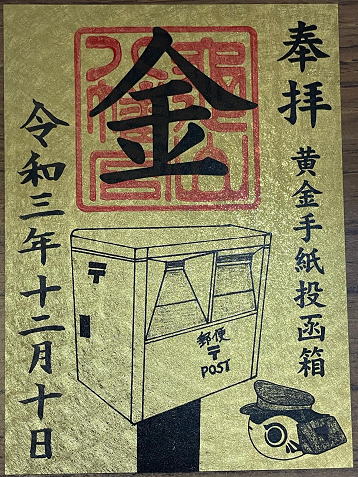 奉拝
黄金手紙投函箱
金
令和三年十二月十日
〒
郵便
〒
POST